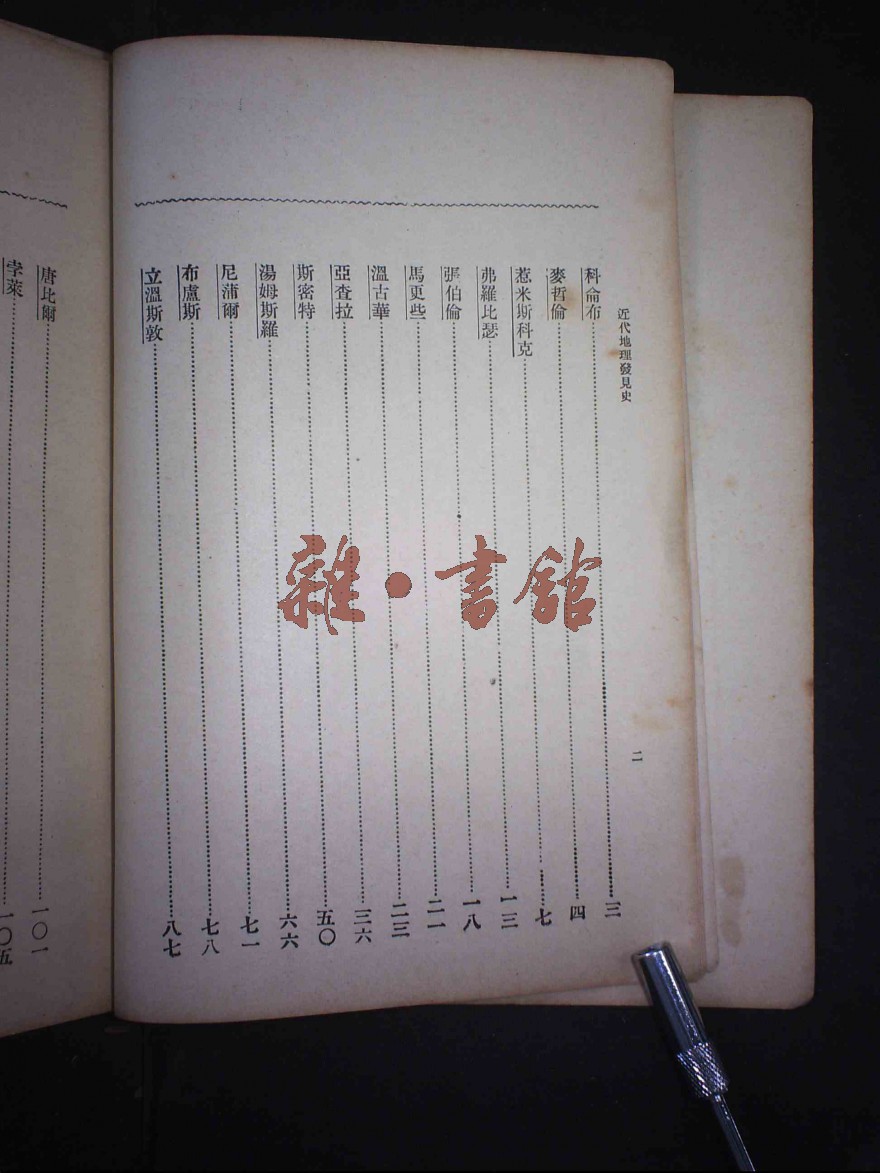 近代地理發見史
二
科侖布 三
麥哲倫 四
惹米斯科克 七
弗羅比瑟 一三
張伯倫 一八
馬更些 二一
溫古華 二三
亞查拉 三六
斯密特 五〇
湯姆斯羅 六六
尼蒲爾 七一
布盧斯 七八
立溫斯敦 八七
唐比爾 一〇一
孛萊 一〇五
雜·書館